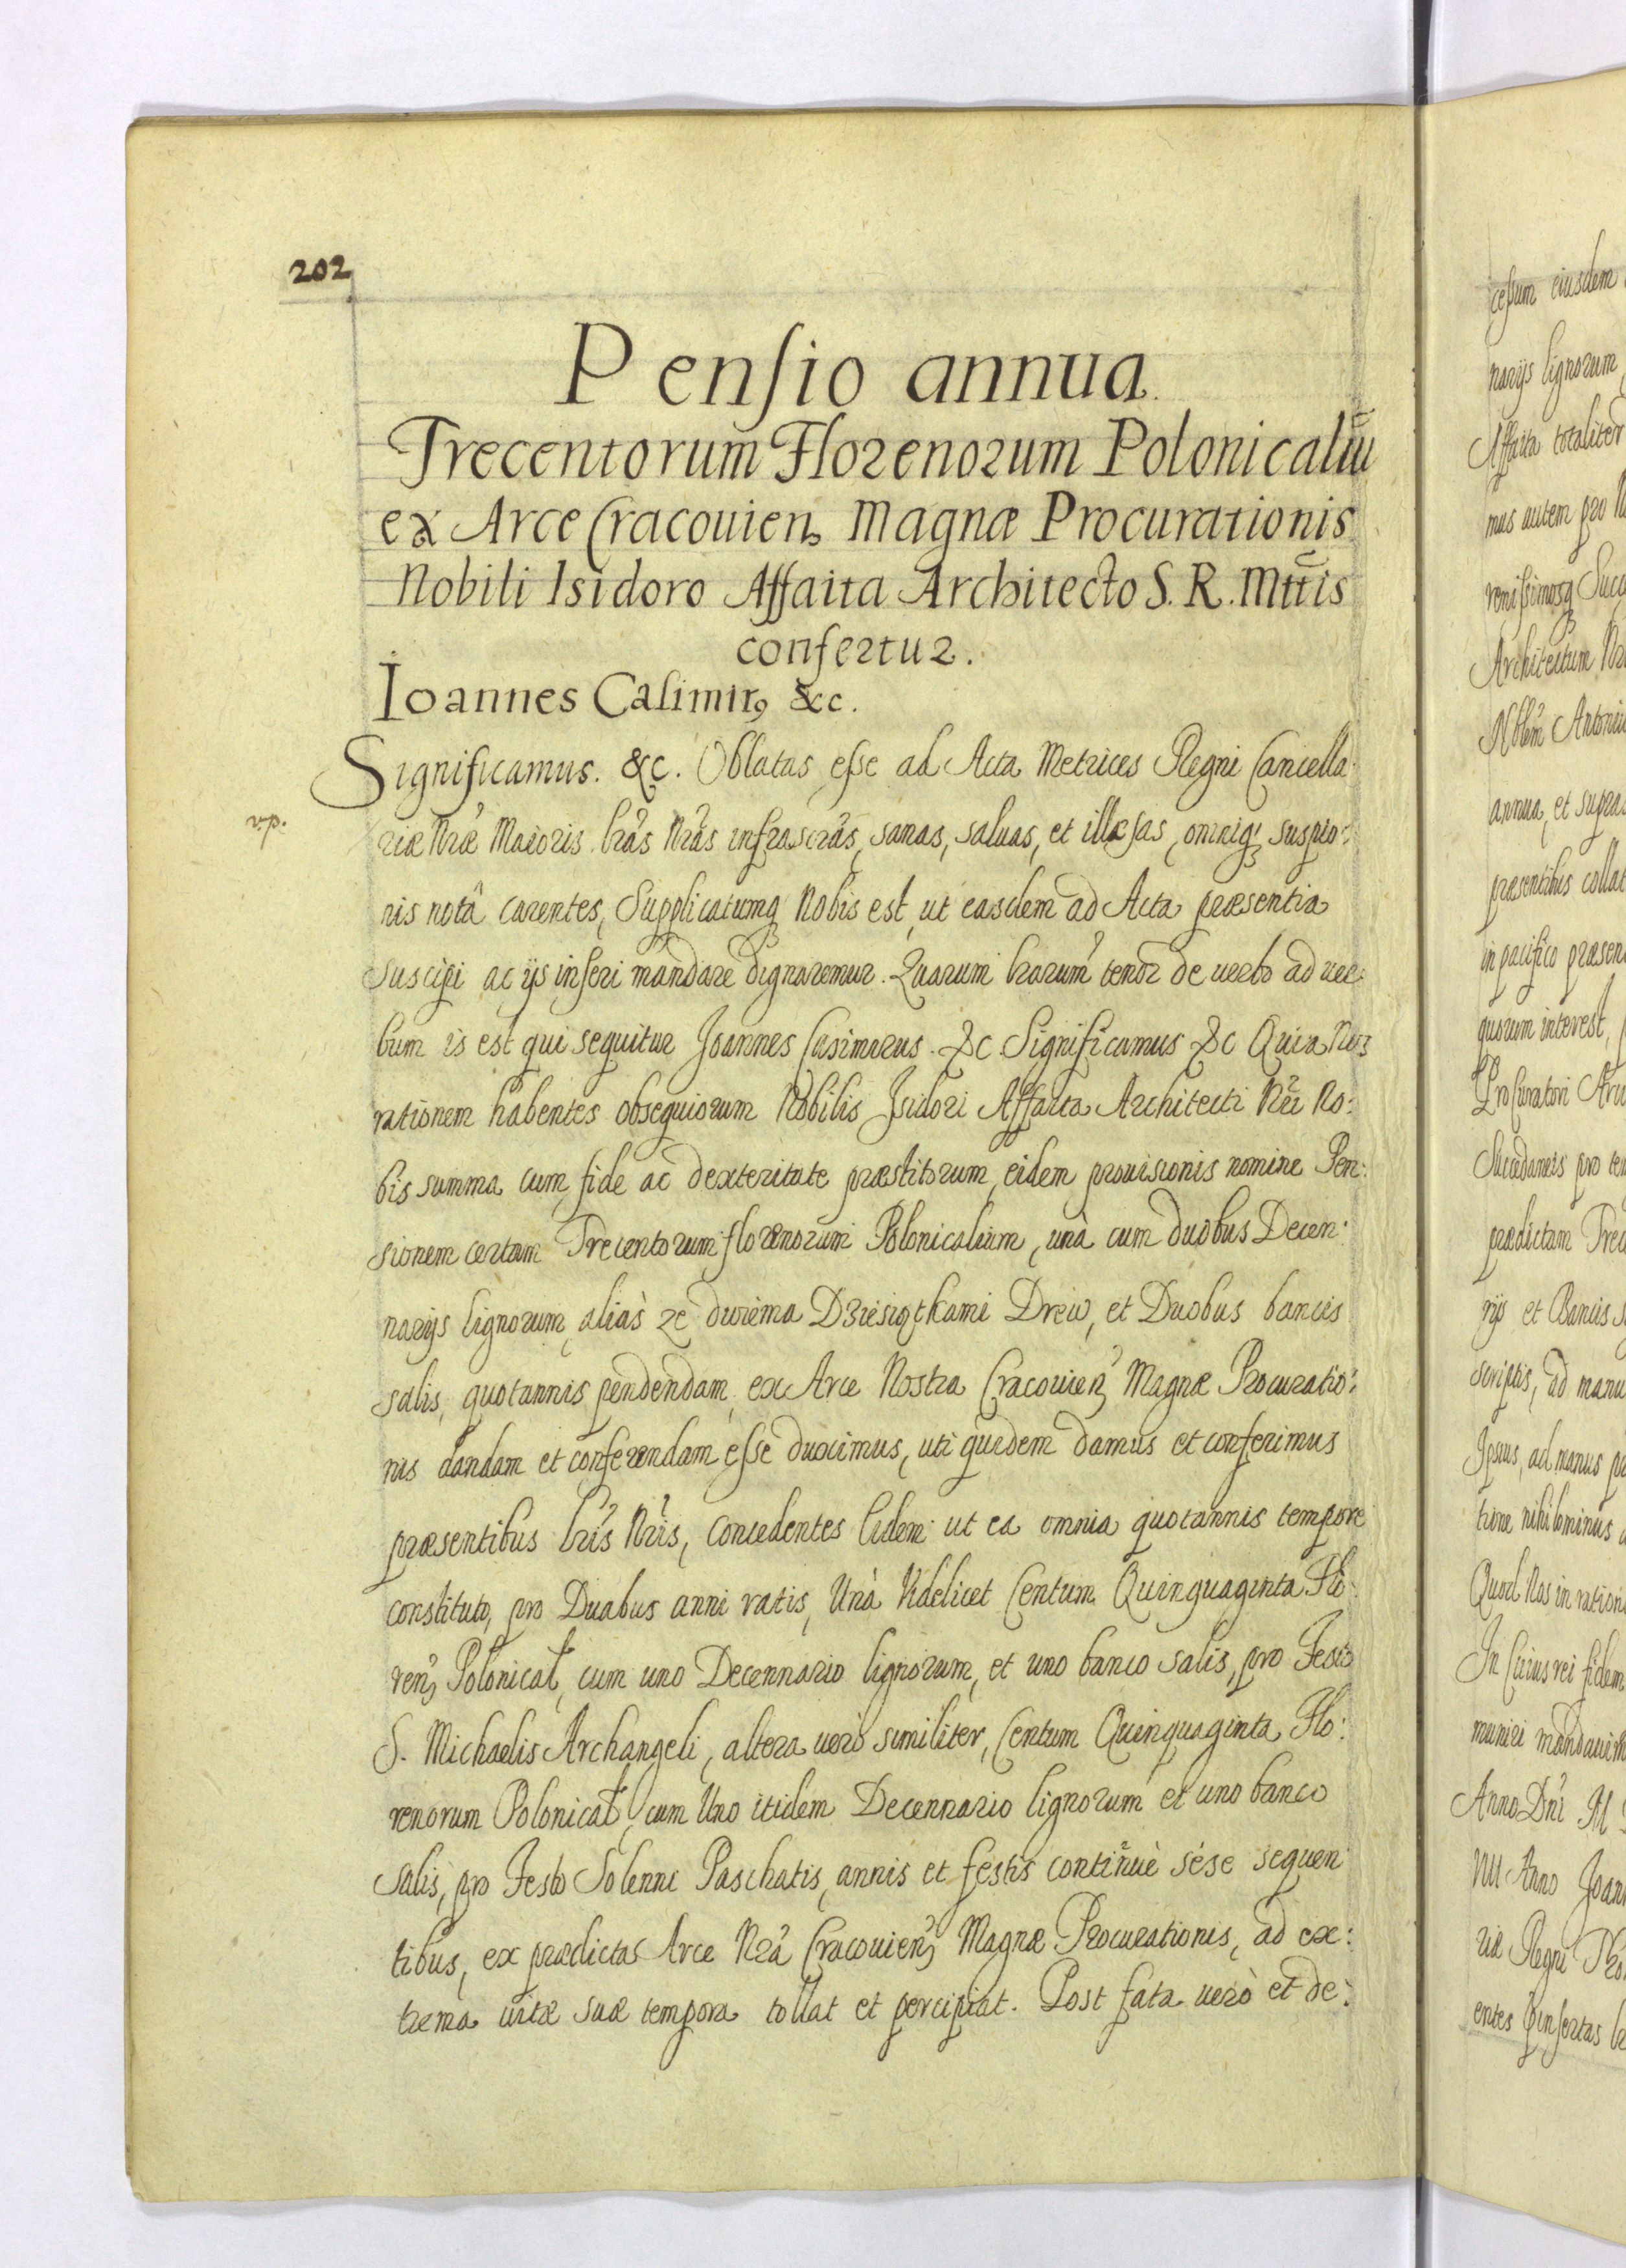 202
Pensio annua
Trecentorum Florenorum Polonicaliũ
ex Arce Cracouien Magnæ Procurationis
Nobili Isidoro Affaita Architecto S. R. Mttis
confertur.
Ioannes Casimirꝰ &c.
Significamus. &c. Oblatas esse ad Acta Metrices Regni Cancella
riæ Nræ Maioris lras Nras infrascras, sanas, saluas, et illæsas, omniq; suspio:
nis notâ carentes, Supplicatumq Nobis est, ut easdem ad Acta præsentia
suscipi ac ijs inseri mandare dignaremur. Quarum lrarum tenor de uerbo ad uer:
bum is est qui sequitur Joannes Casimirus. &c. Significamus &c Quia Nos
rationem habentes obsequiorum Nobilis Isidori Affaita Architecti Nri No:
bis summa cum fide ac dexteritate præstitorum, eidem prouisionis nomine Pen:
sionem certam Trecentorum florenorum Polonicalium, unà cum duobus Decen:
narijs lignorum, aliàs ze dwiema Dziesiątkami Drew, et Duobus bancis
salis, quotannis pendendam, ex Arce Nostra Cracouien Magnæ Procuratio:
nis dandam et conferendam esse duximus, uti quidem damus et conferimus
præsentibus lris Nris, Concedentes Eidem ut ea omnia quotannis tempore
constituto, pro Duabus anni ratis, Unà Videlicet Centum Quinquaginta Flo:
ren Polonical, cum uno Decennario lignorum, et uno banco salis, pro Festo
S. Michaelis Archangeli, altera uerò similiter, Centum Quinquaginta Flo:
renorum Polonical, cum Uno itidem Decennario lignorum et uno banco
salis, pro Festo Solenni Paschatis, annis et festis continuè sése sequen
tibus, ex prædicta Arce Nra Cracouien Magnæ Procurationis, ad ex:
trema uitæ suæ tempora tollat et percipiat. Post fata uerò et de:
cessum eiusdem
narijs lignorum
Affaita totaliter
mus autem pro
Architectum
annua, et supras
præsentibus collat
in pacifico
quorum interest,
Procuratori
prædictam
rijs et Bancis
scriptis, ad manu
Ipsius, ad manus
tione nihilominus
Quod Nos in ration
In Cuius rei fidem
muniri mandauim
Anno Dni M
Anno Joan
riæ Regni